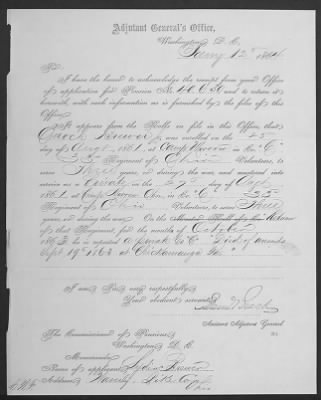 Adjutant General's Office,
Washington D. C.
12 1864
Sir:
I have the honor to acknowledge the receipt from your Office
of application for Pension No. and to return it
herewith, with such information as is furnished by the files of this
Office.
It appears from the Rolls on file in this Office, that
Enoch was enrolled on the
day of Augt. 1861, at Camp in Co. "C"
35 Regiment of Ohio Volunteers, to
serve Three years, or during the war, and mustered into
service as a Private on the day of Sept
1861, at Camp Ohio, in Co. "C" 35
Regiment of Ohio Volunteers, to serve Three
years, or during the war. On the Return
of that Regiment for the month of October
1863, he is reported a private Co. C "Died of wounds
Sept 19" 1863 at Chickamauga Ga"
I am Sir, very respectfully,
Your obedient servant,
Assistant Adjutant General
The Commissioner of Pensions,
Washington D. C.
Memoranda:
Name of applicant, Lydia
Address,
Ohio